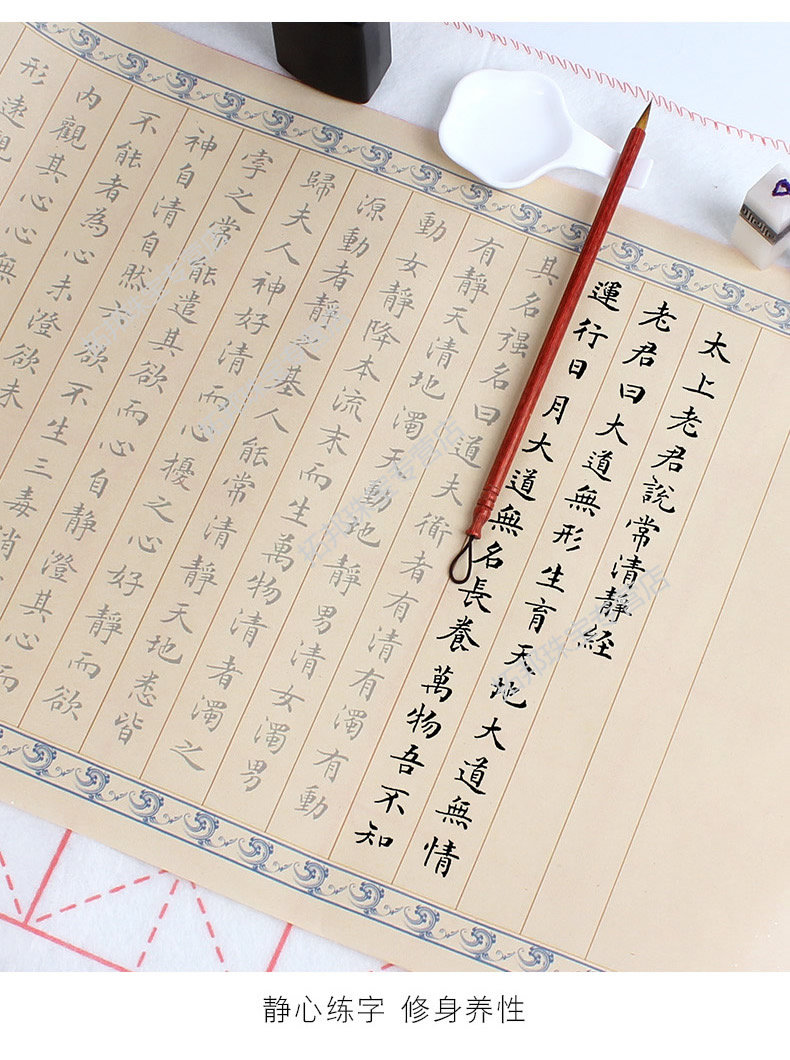 太上老君說常清靜經
老君曰大道無形生育天地大道無情
運行日月大道無名長養萬物吾不知
其名强名曰道夫衜者有清有濁有動
有靜天清地濁天動地靜男清女濁男
動女靜降本流末而生萬物清者濁之
源動者靜之基人能常清靜天地悉皆
歸夫人神好清而心擾之心好靜而欲
牽之常能遣其欲而心自靜澄其心而
神自清自然六欲不生三毒消
不能者為心未澄欲未
內觀其心心無
形遠觀
静心练字 修身养性